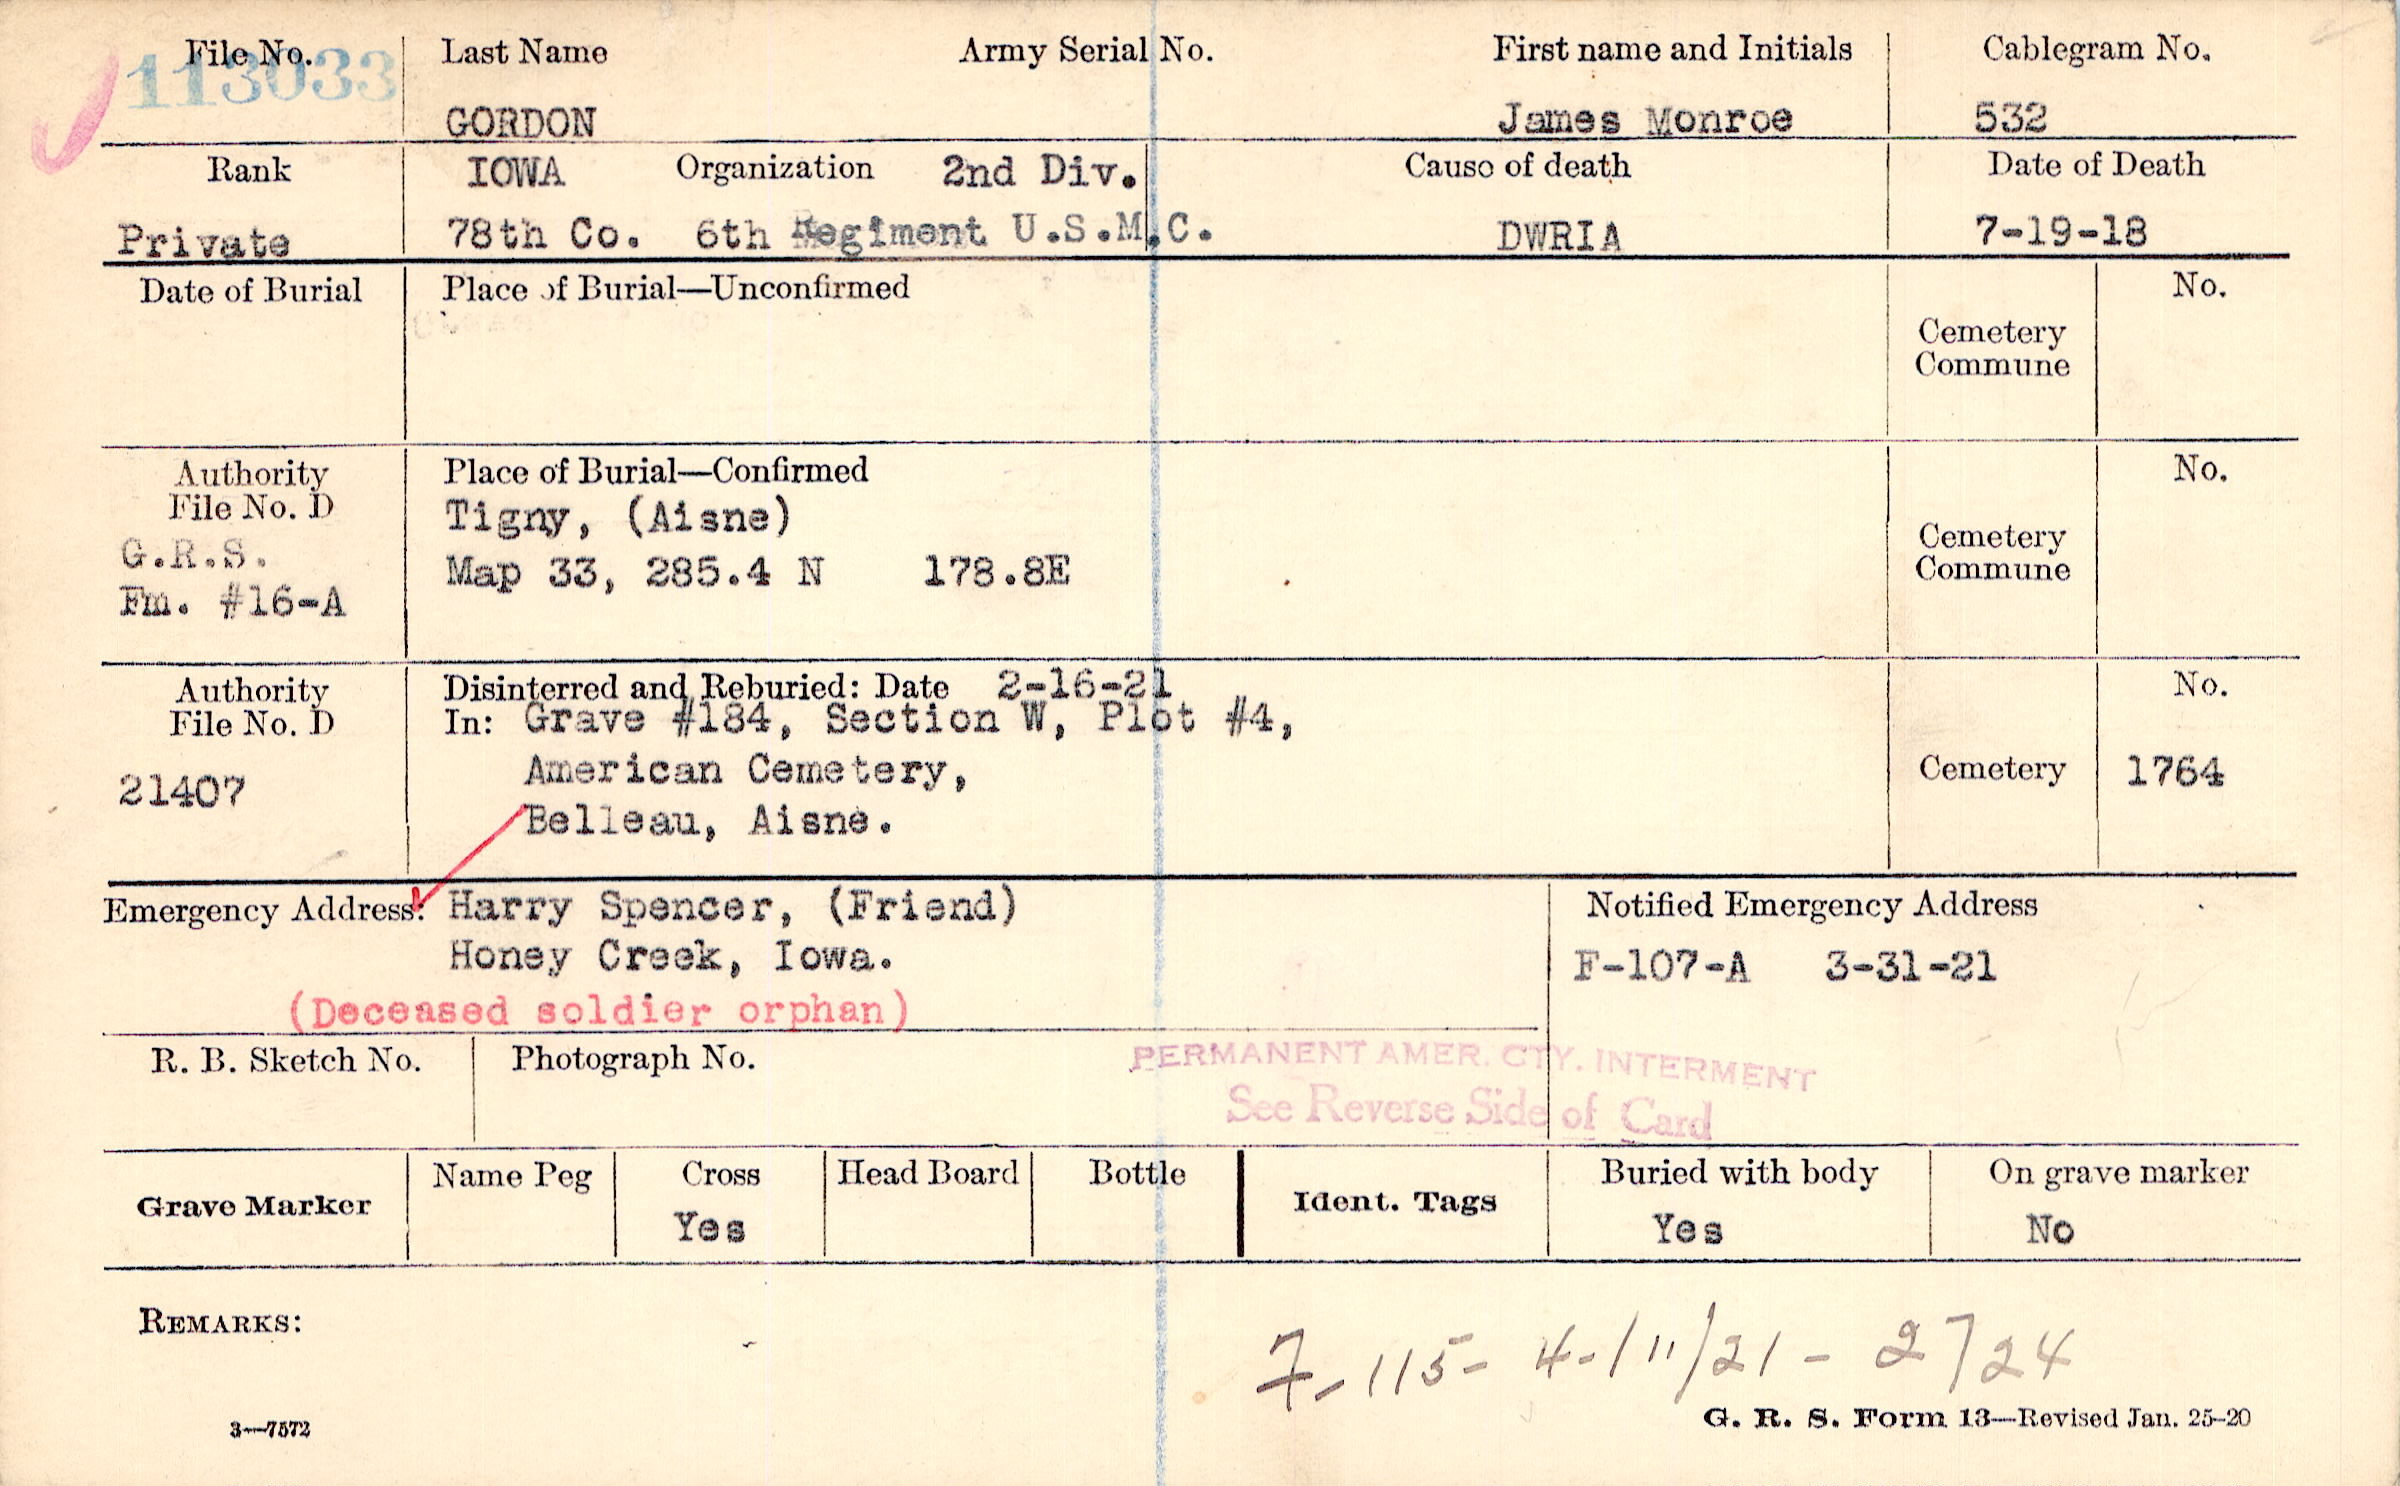 File No. Last Name Army Serial No. First name and Initials Cablegram No.
113033
GORDON James Monroe 532
Rank IOWA Organization 2nd Div. Cause of death Date of Death
Private 78th Co. 6th Regiment U.S.M.C. DWRIA 7-19-18
Date of Burial Place of Burial—Unconfirmed No.
Cemetery
Commune
Authority Place of Burial—Confirmed No.
File No. D Tigny, (Aisne)
G.R.S. Map 33, 285.4 N 178.8E Cemetery
Commune
Fm. #16-A
Authority Disinterred and Reburied: Date 2-16-21 No.
File No. D In: Grave #184, Section W, Plot #4,
21407 American Cemetery, Cemetery 1764
Belleau, Aisne.
Emergency Address: Harry Spencer, (Friend) Notified Emergency Address
Honey Creek, Iowa. F-107-A 3-31-21
(Deceased soldier orphan)
R. B. Sketch No. Photograph No. PERMANENT AMER. CTY. INTERMENT
See Reverse Side of Card
Grave Marker Name Peg Cross Head Board Bottle Ident. Tags Buried with body On grave marker
Yes Yes No
REMARKS:
7-115- 4-/11/21 - 2724
3—7572 G. R. S. Form 13—Revised Jan. 25-20